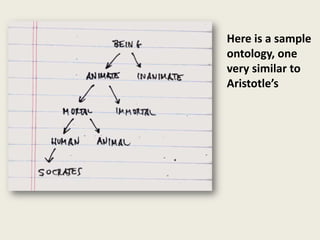 BEING
ANIMATE INANIMATE
MORTAL IMMORTAL
HUMAN ANIMAL
SOCRATES
Here is a sample
ontology, one
very similar to
Aristotle’s